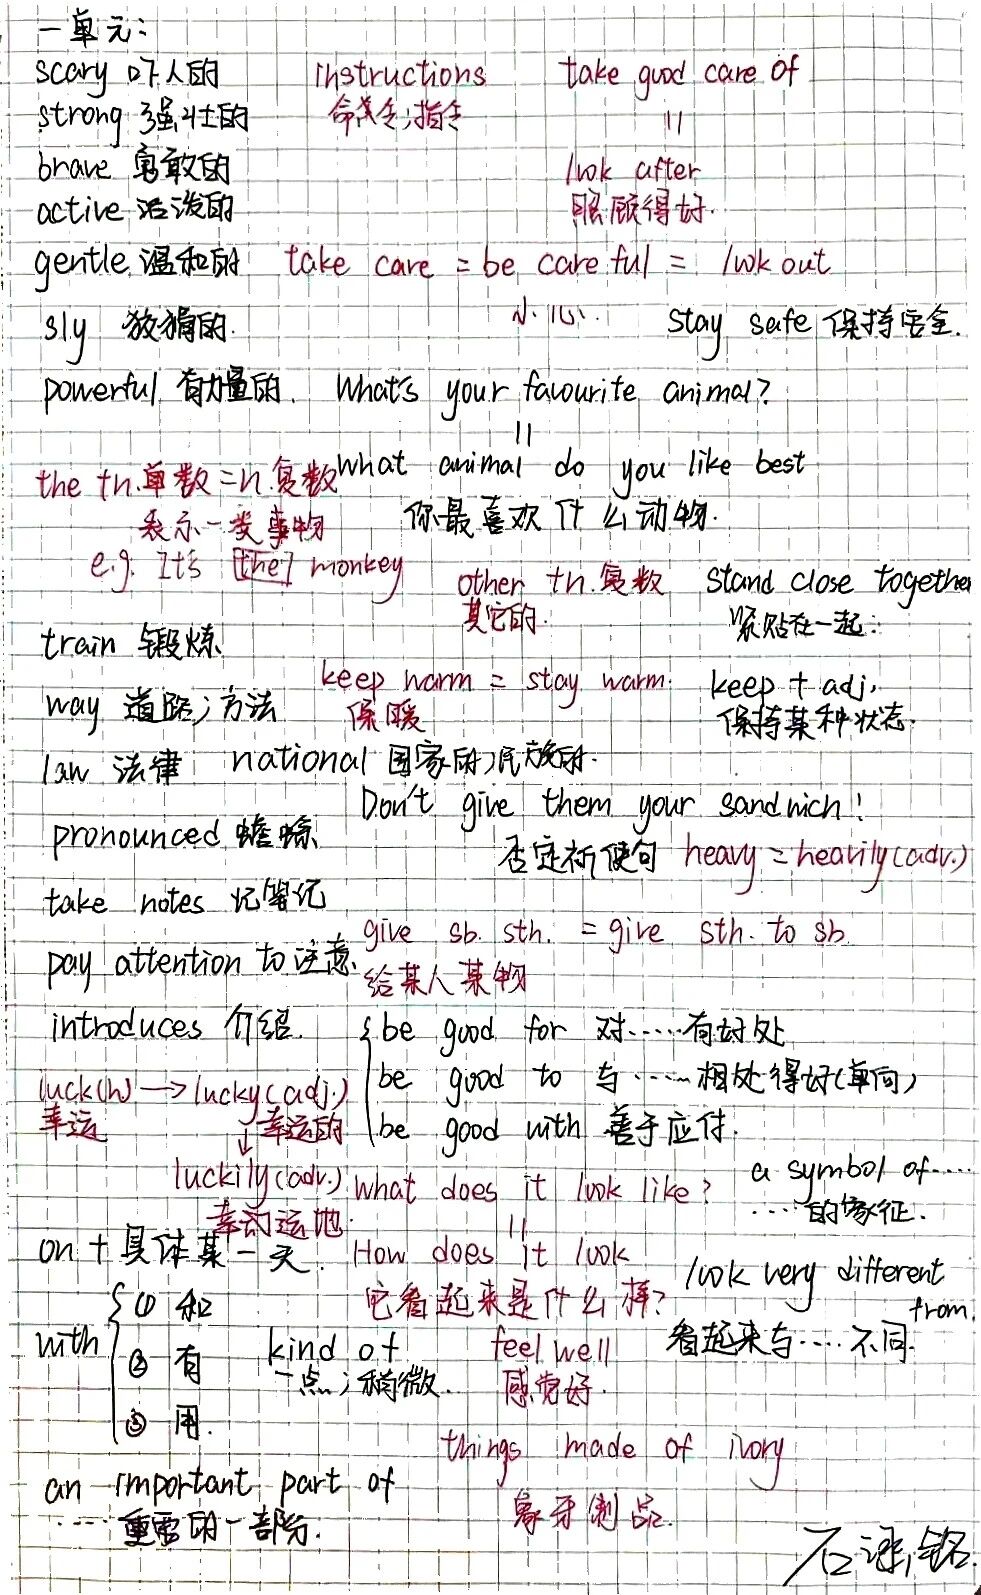 一单元:
scary 吓人的 instructions take good care of
strong 强壮的 命令;指令 =
brave 勇敢的 look after
active 活泼的 照顾得好.
gentle 温和的 take care = be careful = look out
sly 狡猾的. 小心. stay safe 保持安全.
powerful 有力量的. What's your favourite animal?
=
the +n.单数=n.复数 what animal do you like best
表示一类事物 你最喜欢什么动物.
e.g. It's the monkey other +n.复数 stand close together
其它的. 紧贴在一起.
train 锻炼 keep warm = stay warm. keep + adj.
way 道路;方法 保暖 保持某种状态.
law 法律 national 国家的;民族的.
Don't give them your sandwich!
pronounced 蟾蜍 否定祈使句 heavy = heavily(adv.)
take notes 记笔记
give sb. sth. = give sth. to sb.
pay attention to 注意 给某人某物
introduces 介绍. be good for 对……有好处
luck(n) → lucky(adj.) be good to 与……相处得好(单向)
幸运 幸运的 be good with 善于应付.
↓
luckily(adv.) what does it look like? a symbol of……
幸运地. = ……的象征.
on + 具体某一天. How does it look look very different from.
它看起来是什么样? 看起来与……不同.
with ① 和
② 有 kind of feel well
一点;稍微. 感觉好.
③ 用.
things made of ivory
an important part of 象牙制品.
……重要的一部分.